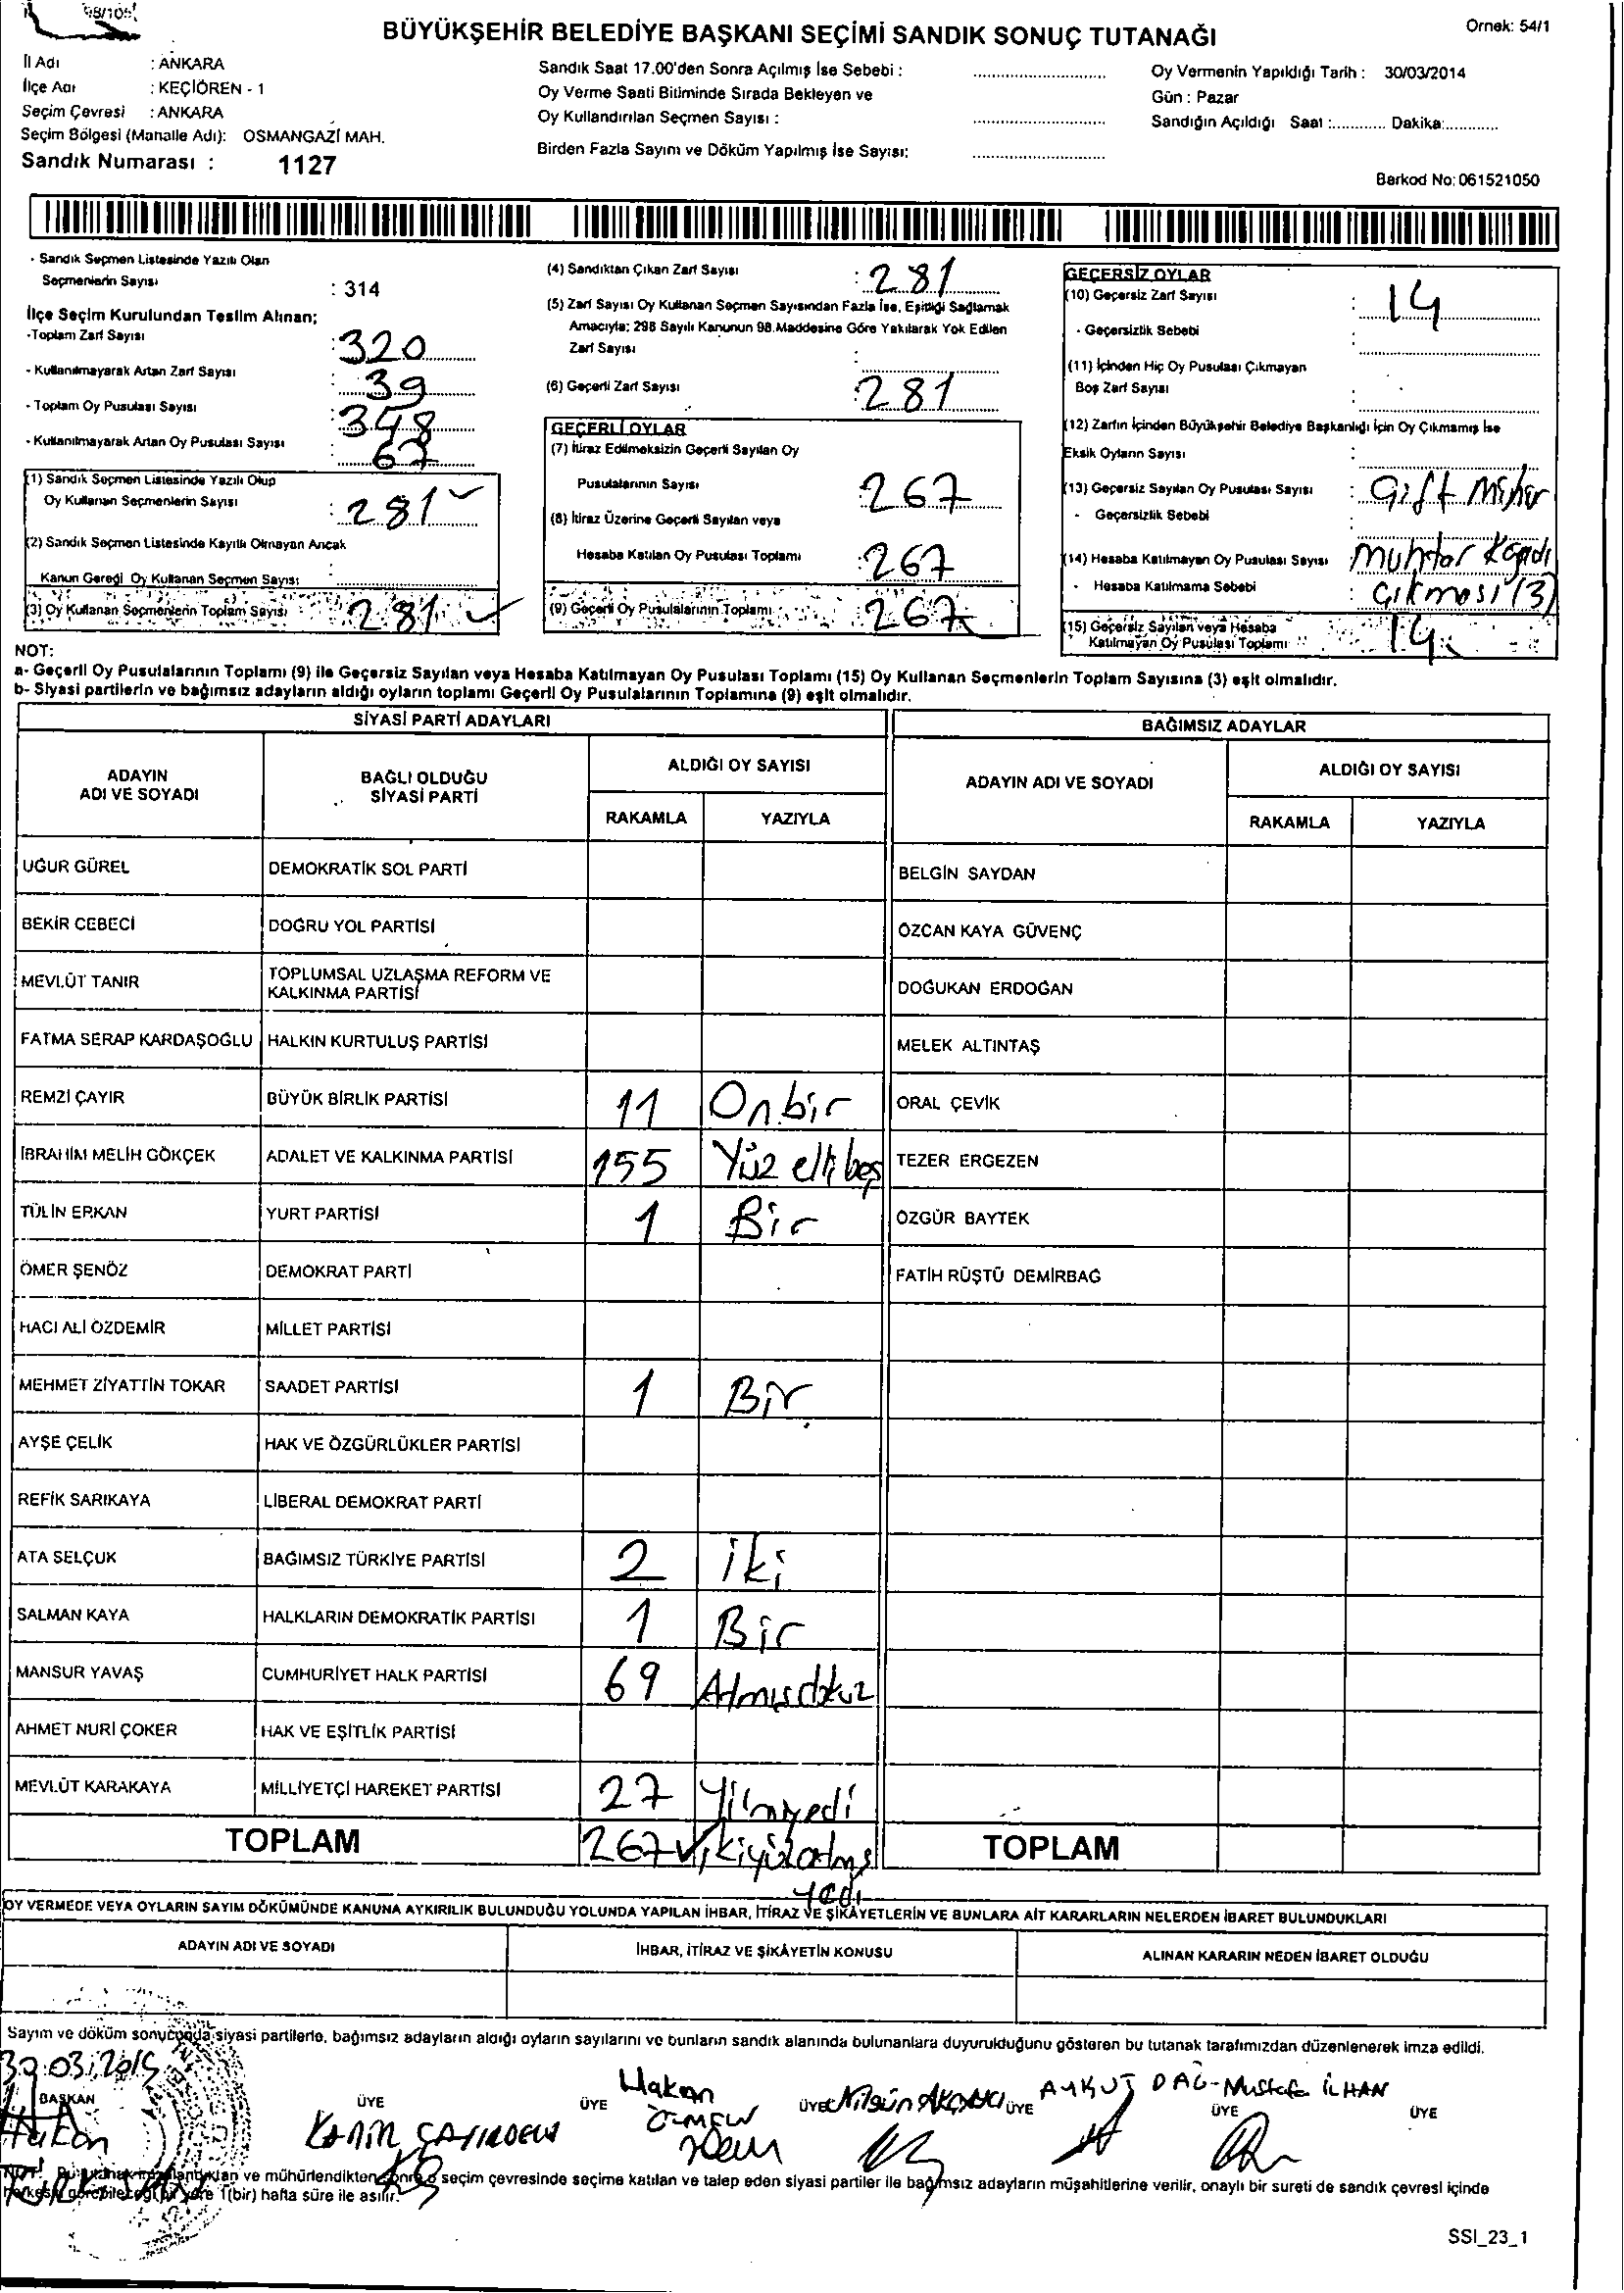 98/105
BÜYÜKŞEHİR BELEDİYE BAŞKANI SEÇİMİ SANDIK SONUÇ TUTANAĞI
Örnek: 54/1
İl Adı : ANKARA
İlçe Adı : KEÇİÖREN - 1
Seçim Çevresi : ANKARA
Seçim Bölgesi (Mahalle Adı): OSMANGAZİ MAH.
Sandık Numarası : 1127
Sandık Saat 17.00'den Sonra Açılmış İse Sebebi :
Oy Verme Saati Bitiminde Sırada Bekleyen ve
Oy Kullandırılan Seçmen Sayısı :
Birden Fazla Sayım ve Döküm Yapılmış İse Sayısı:
Oy Vermenin Yapıldığı Tarih : 30/03/2014
Gün : Pazar
Sandığın Açıldığı Saat :............ Dakika:............
Barkod No: 061521050
- Sandık Seçmen Listesinde Yazılı Olan
Seçmenlerin Sayısı : 314
İlçe Seçim Kurulundan Teslim Alınan;
-Toplam Zarf Sayısı : 320
- Kullanılmayarak Artan Zarf Sayısı : 39
- Toplam Oy Pusulası Sayısı : 348
- Kullanılmayarak Artan Oy Pusulası Sayısı : 67
(1) Sandık Seçmen Listesinde Yazılı Olup
Oy Kullanan Seçmenlerin Sayısı : 281
(2) Sandık Seçmen Listesinde Kayıtlı Olmayan Ancak
Kanun Gereği Oy Kullanan Seçmen Sayısı :
(3) Oy Kullanan Seçmenlerin Toplam Sayısı 281
(4) Sandıktan Çıkan Zarf Sayısı : 281
(5) Zarf Sayısı Oy Kullanan Seçmen Sayısından Fazla İse, Eşitliği Sağlamak
Amacıyla; 298 Sayılı Kanunun 98.Maddesine Göre Yakılarak Yok Edilen
Zarf Sayısı :
(6) Geçerli Zarf Sayısı : 281
GEÇERLİ OYLAR
(7) İtiraz Edilmeksizin Geçerli Sayılan Oy
Pusulalarının Sayısı : 267
(8) İtiraz Üzerine Geçerli Sayılan veya
Hesaba Katılan Oy Pusulası Toplamı : 267
(9) Geçerli Oy Pusulalarının Toplamı : 267
GEÇERSİZ OYLAR
(10) Geçersiz Zarf Sayısı : 14
- Geçersizlik Sebebi :
(11) İçinden Hiç Oy Pusulası Çıkmayan
Boş Zarf Sayısı :
(12) Zarfın İçinden Büyükşehir Belediye Başkanlığı İçin Oy Çıkmamış İse
Eksik Oyların Sayısı :
(13) Geçersiz Sayılan Oy Pusulası Sayısı : Çift Mühür
- Geçersizlik Sebebi :
(14) Hesaba Katılmayan Oy Pusulası Sayısı muhtar Kağıdı
- Hesaba Katılmama Sebebi : Çıkması (3)
(15) Geçersiz Sayılan veya Hesaba
Katılmayan Oy Pusulası Toplamı : 14
NOT:
a- Geçerli Oy Pusulalarının Toplamı (9) ile Geçersiz Sayılan veya Hesaba Katılmayan Oy Pusulası Toplamı (15) Oy Kullanan Seçmenlerin Toplam Sayısına (3) eşit olmalıdır.
b- Siyasi partilerin ve bağımsız adayların aldığı oyların toplamı Geçerli Oy Pusulalarının Toplamına (9) eşit olmalıdır.
SİYASİ PARTİ ADAYLARI BAĞIMSIZ ADAYLAR
ADAYIN ADI VE SOYADI BAĞLI OLDUĞU SİYASİ PARTİ ALDIĞI OY SAYISI ADAYIN ADI VE SOYADI ALDIĞI OY SAYISI
RAKAMLA YAZIYLA RAKAMLA YAZIYLA
UĞUR GÜREL DEMOKRATİK SOL PARTİ BELGİN SAYDAN
BEKİR CEBECİ DOĞRU YOL PARTİSİ ÖZCAN KAYA GÜVENÇ
MEVLÜT TANIR TOPLUMSAL UZLAŞMA REFORM VE KALKINMA PARTİSİ DOĞUKAN ERDOĞAN
FATMA SERAP KARDAŞOĞLU HALKIN KURTULUŞ PARTİSİ MELEK ALTINTAŞ
REMZİ ÇAYIR BÜYÜK BİRLİK PARTİSİ 11 Onbir ORAL ÇEVİK
İBRAHİM MELİH GÖKÇEK ADALET VE KALKINMA PARTİSİ 155 Yüz elli beş TEZER ERGEZEN
TÜLİN ERKAN YURT PARTİSİ 1 Bir ÖZGÜR BAYTEK
ÖMER ŞENÖZ DEMOKRAT PARTİ FATİH RÜŞTÜ DEMİRBAĞ
HACI ALİ ÖZDEMİR MİLLET PARTİSİ
MEHMET ZİYATTİN TOKAR SAADET PARTİSİ 1 Bir
AYŞE ÇELİK HAK VE ÖZGÜRLÜKLER PARTİSİ
REFİK SARIKAYA LİBERAL DEMOKRAT PARTİ
ATA SELÇUK BAĞIMSIZ TÜRKİYE PARTİSİ 2 iki
SALMAN KAYA HALKLARIN DEMOKRATİK PARTİSİ 1 Bir
MANSUR YAVAŞ CUMHURİYET HALK PARTİSİ 69 Atmışdokuz
AHMET NURİ ÇOKER HAK VE EŞİTLİK PARTİSİ
MEVLÜT KARAKAYA MİLLİYETÇİ HAREKET PARTİSİ 27 Yilmiyedi
TOPLAM 267 ikiyüzatmış yedi TOPLAM
OY VERMEDE VEYA OYLARIN SAYIM DÖKÜMÜNDE KANUNA AYKIRILIK BULUNDUĞU YOLUNDA YAPILAN İHBAR, İTİRAZ VE ŞİKÂYETLERİN VE BUNLARA AİT KARARLARIN NELERDEN İBARET BULUNDUKLARI
ADAYIN ADI VE SOYADI İHBAR, İTİRAZ VE ŞİKÂYETİN KONUSU ALINAN KARARIN NEDEN İBARET OLDUĞU
Sayım ve döküm sonucunda siyasi partilerle, bağımsız adayların aldığı oyların sayılarını ve bunların sandık alanında bulunanlara duyurulduğunu gösteren bu tutanak tarafımızdan düzenlenerek imza edildi.
BAŞKAN ÜYE ÜYE ÜYE ÜYE ÜYE ÜYE
Hakan Hakan AYKUT DAĞ Mustafa İLHAN
NOT: Bu tutanak imzalandıktan ve mühürlendikten sonra o seçim çevresinde seçime katılan ve talep eden siyasi partiler ile bağımsız adayların müşahitlerine verilir, onaylı bir sureti de sandık çevresi içinde
herkesin görebileceği bir yere 1(bir) hafta süre ile asılır.
SSI_23_1